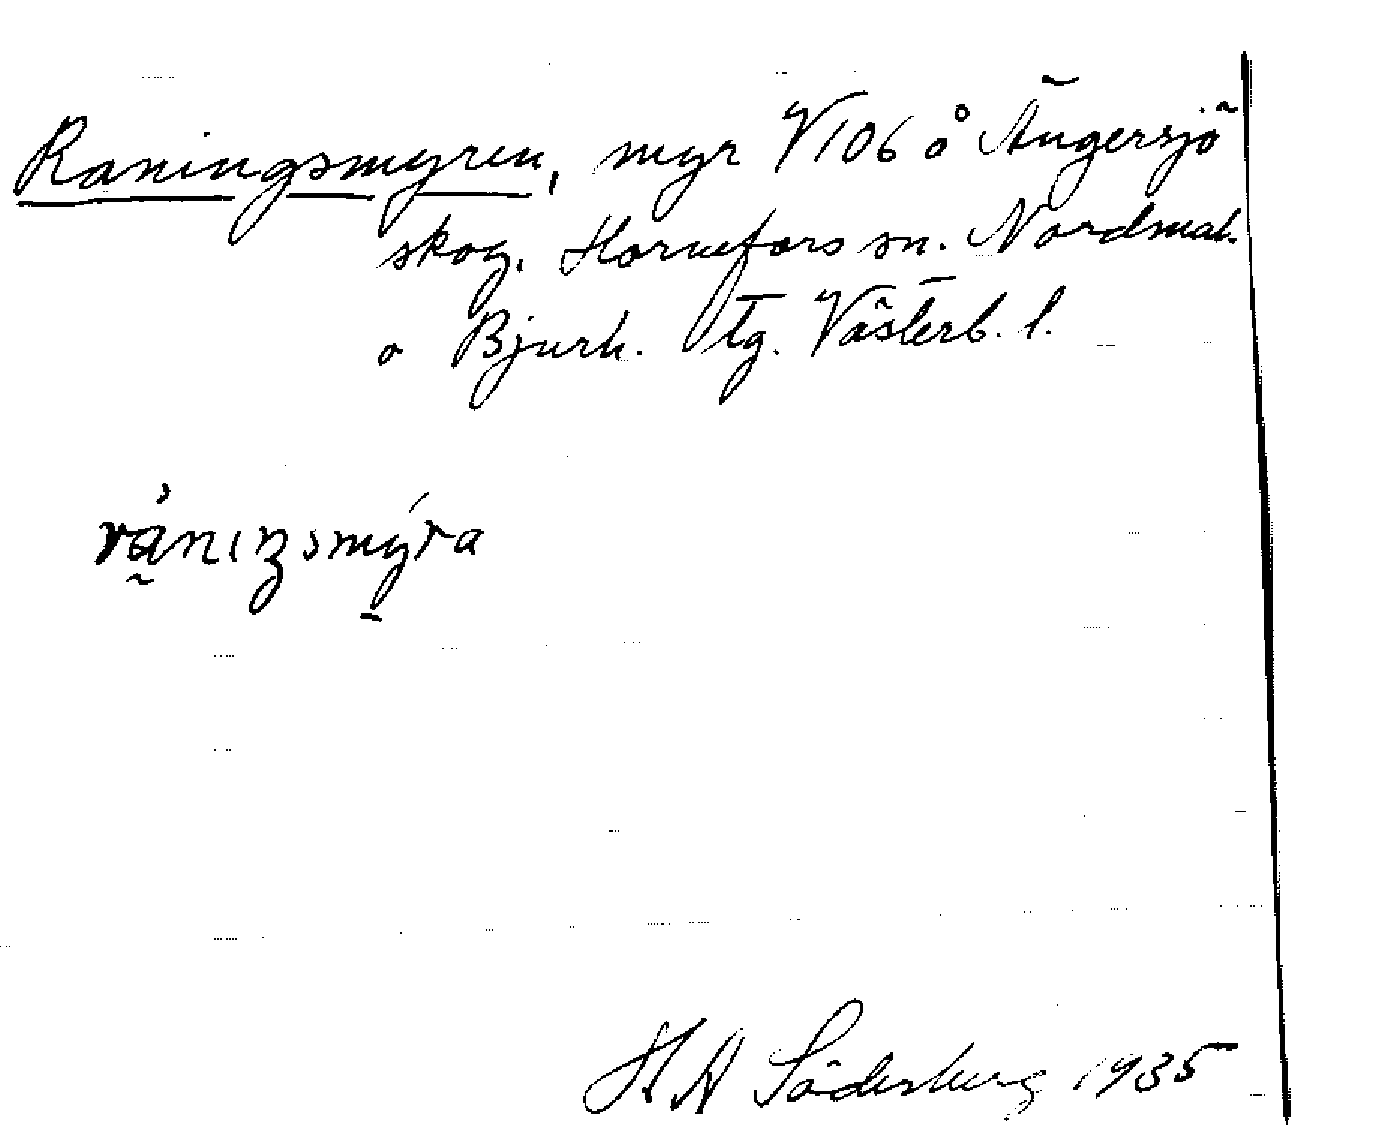 Raningsmyren, myr V106 å Ängersjö
skog. Hörnefors sn. Nordmal.
o Bjurh. tg. Västerb. l.
rániŋsmýra
H A Söderberg 1935